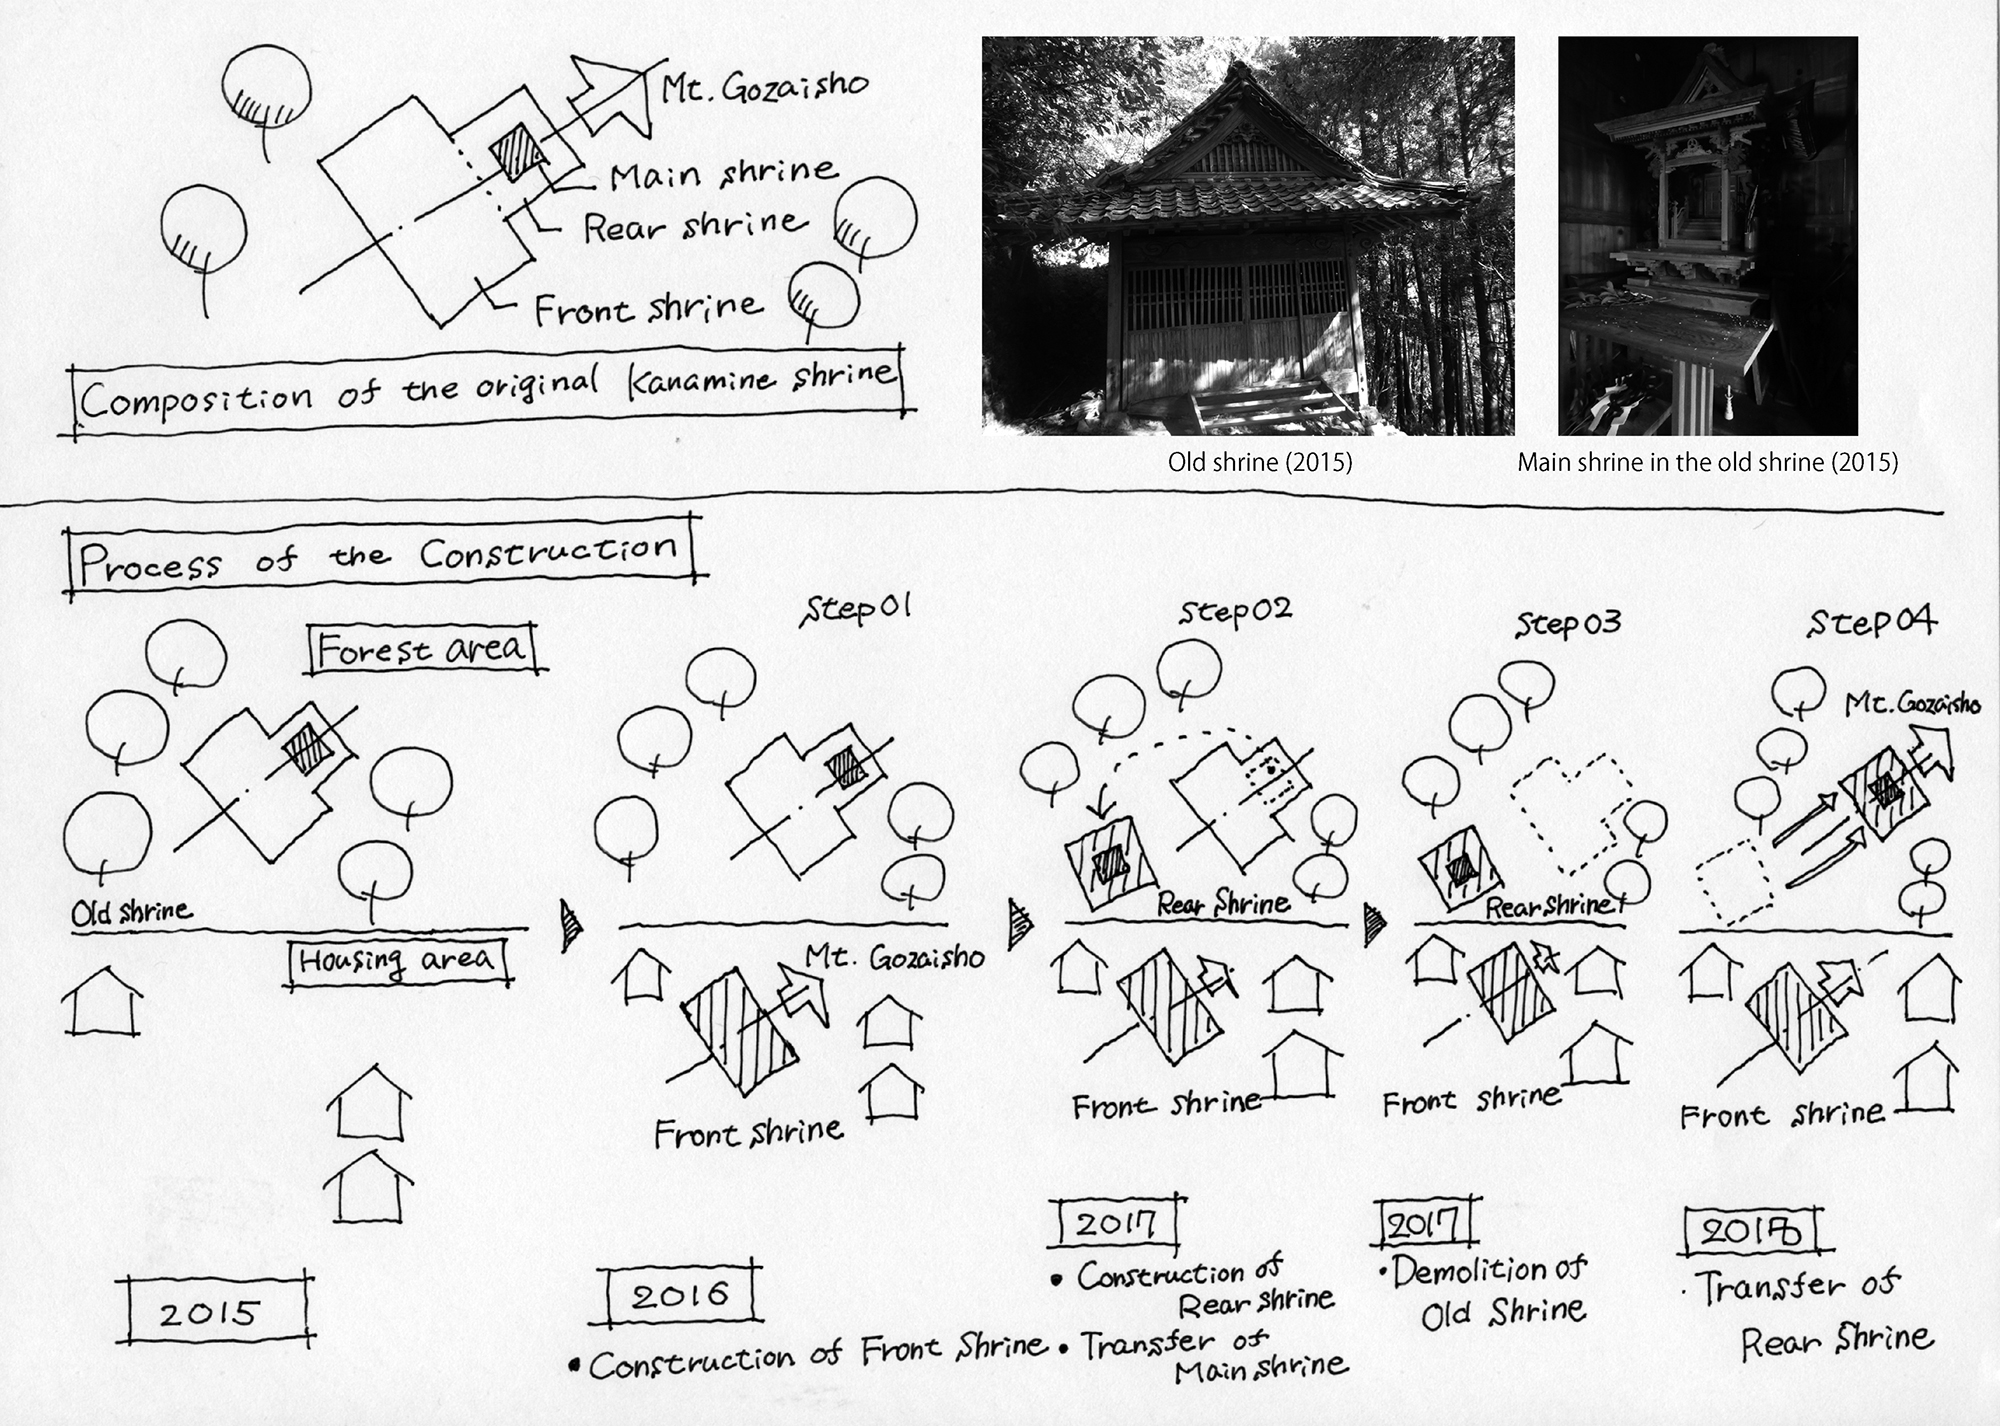 Mt. Gozaisho
Main shrine
Rear shrine
Front shrine
Composition of the original Kanamine shrine
Old shrine (2015)
Main shrine in the old shrine (2015)
Process of the Construction
Forest area
Old shrine
Housing area
2015
Step01
Mt. Gozaisho
Front shrine
2016
• Construction of Front Shrine
Step02
Rear Shrine
Front shrine
2017
• Construction of
Rear shrine
• Transfer of
Main shrine
Step03
Rear shrine
Front shrine
2017
• Demolition of
Old Shrine
Step04
Mt. Gozaisho
Front shrine
2018
• Transfer of
Rear Shrine